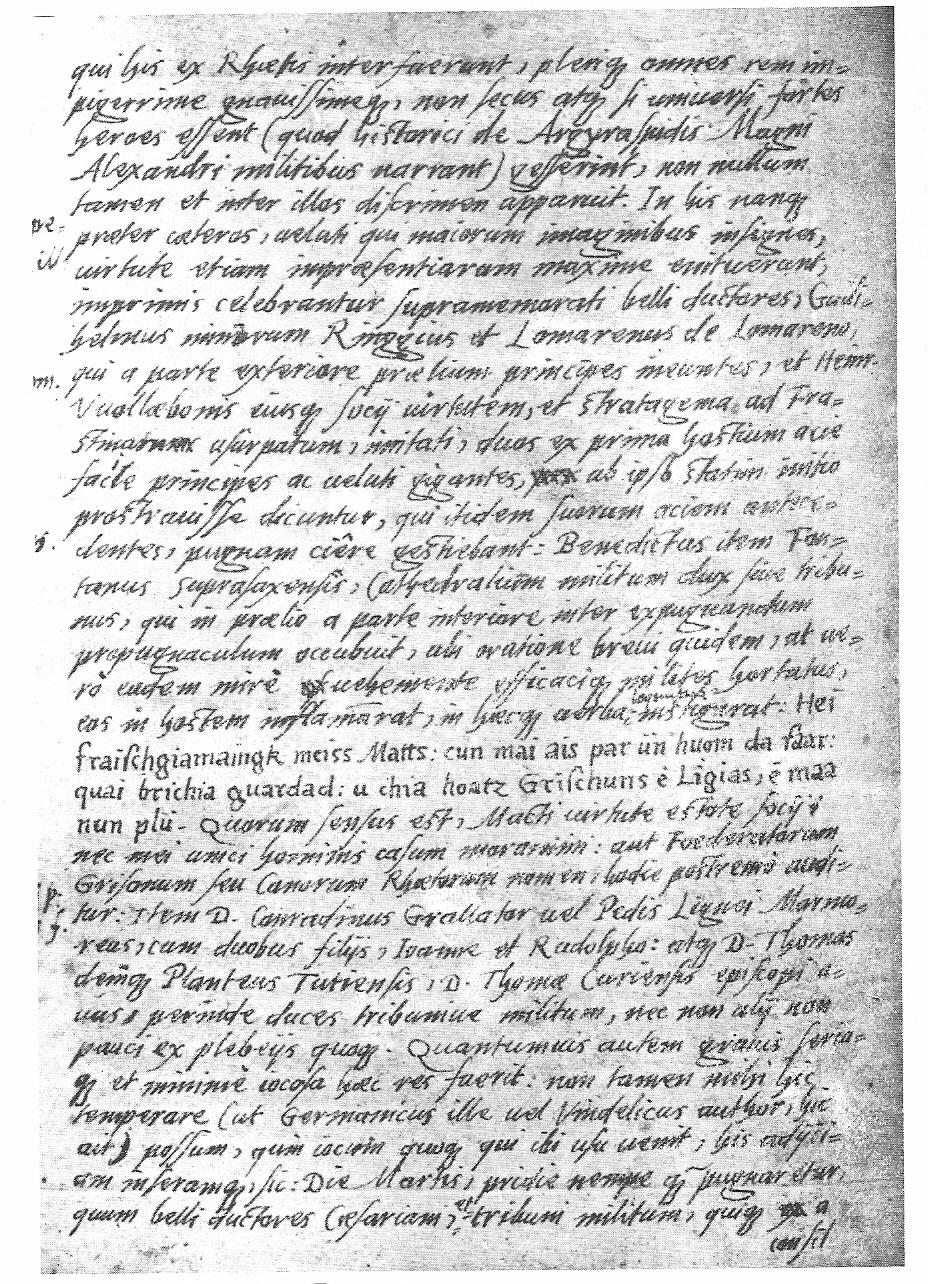 qui his ex Rhætis interfuerunt, pleriq; omnes rem im=
pigerrime gnauissimeq;, non secus atq; si uniuersi fortes
heroes essent (quod historici de Argyraspidis Magni
Alexandri militibus narrant) gesserint, non nullum
tamen et inter illos discrimen apparuit. In his nanq;
præter cæteros, ueluti qui maiorum imaginibus insignes,
uirtute etiam impræsentiarum maxime enituerunt,
imprimis celebrantur supramemorati belli ductores, Guili=
helmus Ringgius et Lomarenus de Lomareno,
qui a parte exteriore prælium principes ineuntes, et Heinr.
Vuollæbonis eiusq; socij uirtutem, et stratagema ad Fra=
usurpatum, imitati, duos ex prima hostium acie
facile principes ac ueluti gigantes, ab ipso statim initio
prostrauisse dicuntur, qui itidem suorum aciem antece=
dentes, pugnam ciêre gestiebant: Benedictus item Fon=
tanus Suprasaxensis, Cathedralium militum dux siue tribu=
nus, qui in prælio a parte interiore inter expugnandum
propugnaculum occubuit, ubi oratione breui quidem, at ue=
rò eadem mirè uehemente efficaciq; milites hortatus,
eos in hostem inflam̄arat, in hæcq; uerba, instigarat: Hei
fraischgiamaingk meiss Matts: cun mai ais par ün huom da faar:
quai brichia guardad: u chia hoatz Grischuns è Ligias, è maa
nun plü. Quorum sensus est, Macti uirtute estote socij
nec mei unici hominis casum moramini: aut Foederatorum
Grisonum seu Canorum Rhætorum nomen, hodie postremò audi=
tur: Item D. Conradinus Grallator uel Pedis Lignei Marmo=
reus, cum duobus filijs, Ioanne et Rudolpho: atq; D. Thomas
deniq; Planteus Tutiensis, D. Thomæ Curiensis episcopi a=
uus, perinde duces tribuniue militum, nec non alij non
pauci ex plebeijs quoq;. Quantumuis autem grauis seria=
q; et minimè iocosa hæc res fuerit: non tamen mihi hic
temperare (ut Germanicus ille uel Vindelicus author, hic
ait) possum, quin iocum quoq; qui ibi usu uenit, his adijci=
am inseramq;, sic: Die Martis, pridie nempe q; pugnaretur,
quum belli ductores Cæsariani, et tribuni militum, quiq; a
consil